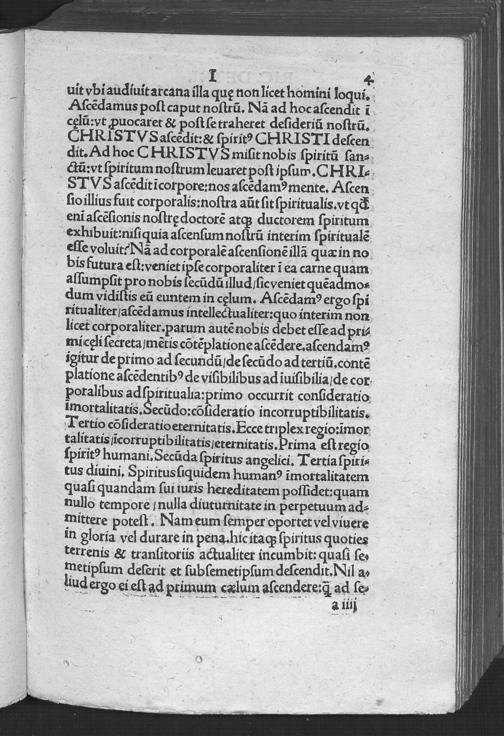 I 4
uit vbi audiuit arcana illa quę non licet homini loqui.
Ascēdamus post caput nostrū. Nā ad hoc ascendit ī
cęlū: vt ꝓuocaret & post se traheret desideriū nostrū.
CHRISTVS ascēdit: & spiritꝰ CHRISTI descen
dit. Ad hoc CHRISTVS misit nobis spiritū san-
ctū: vt spiritum nostrum leuaret post ipsum. CHRI-
STVS ascēdit ī corpore: nos ascēdamꝰ mente. Ascen
sio illius fuit corporalis: nostra aūt sit spiritualis. vt qd̄
enī ascēsionis nostrę doctorē atqꝫ ductorem spiritum
exhibuit: nisi quia ascensum nostrū interim spiritualē
esse voluit? Nā ad corporalē ascensionē illā quæ in no
bis futura est: veniet ipse corporaliter ī ea carne quam
assumpsit pro nobis secūdū illud/ sic veniet quēadmo-
dum vidistis eū euntem in cęlum. Ascēdamꝰ ergo spi
ritualiter/ ascēdamus intellectualiter: quo interim non
licet corporaliter. parum autē nobis debet esse ad pri-
mi cęli secreta/ mētis cōtēplatione ascēdere. ascendamꝰ
igitur de primo ad secundū/ de secūdo ad tertiū. contē
platione ascēdentibꝰ de visibilibus ad īuisibilia/ de cor
poralibus ad spiritualia: primo occurrit consideratio
imortalitatis. Secūdo: cōsideratio incorruptibilitatis.
Tertio cōsideratio eternitatis. Ecce triplex regio: imor
talitatis/ īcorruptibilitatis/ eternitatis. Prima est regio
spiritꝰ humani. Secūda spiritus angelici. Tertia spiri-
tus diuini. Spiritus siquidem humanꝰ īmortalitatem
quasi quandam sui iuris hereditatem possidet: quam
nullo tempore/ nulla diuturnitate in perpetuum ad-
mittere potest. Nam eum semper oportet vel viuere
in gloria vel durare in pena. hic itaqꝫ spiritus quoties
terrenis & transitoriis actualiter incumbit: quasi se-
metipsum deserit et sub semetipsum descendit. Nil a-
liud ergo ei est ad primum cælum ascendere: q̄ ad se-
a iiij